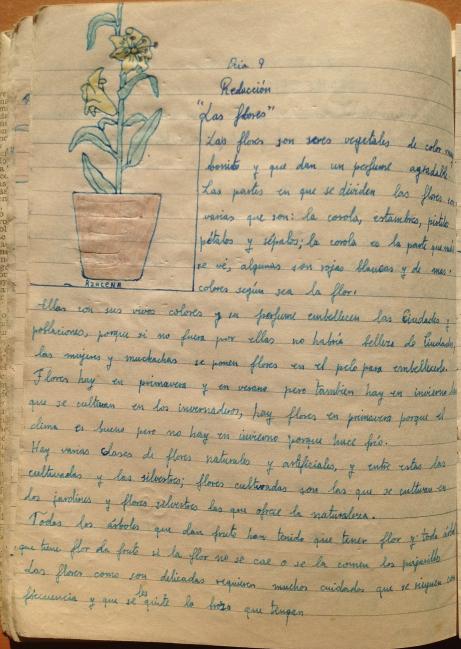 Dia 9
Redacción
"Las flores"
Las flores son seres vegetales de color muy
bonito y que dan un perfume agradable.
Las partes en que se dividen las flores son
varias que son: la corola, estambres, pistilo
pétalos y sépalos; la corola es la parte que más
se vé, algunas son rojas blancas y de mas
colores según sea la flor.
AZUCENA
Ellas con sus vivos colores y su perfume embellecen las Ciudades y
poblaciones, porque si no fuera por ellas no habría belleza de Ciudades,
las mujeres y muchachas se ponen flores en el pelo para embellecerlo.
Flores hay en primavera y en verano pero también hay en invierno las
que se cultivan en los invernaderos, hay flores en primavera porque el
clima es bueno pero no hay en invierno porque hace frío.
Hay varias clases de flores naturales y artificiales, y entre estas las
cultivadas y las silvestres; flores cultivadas son las que se cultivan en
los jardines y flores silvestres las que ofrece la naturaleza.
Todos los árboles que dan fruto han tenido que tener flor y toda árbol
que tiene flor da fruto si la flor no se cae o se la comen los pajarillos.
Las flores como son delicadas requieren muchos cuidados que se rieguen con
frecuencia y que se les quite la broza que tengan